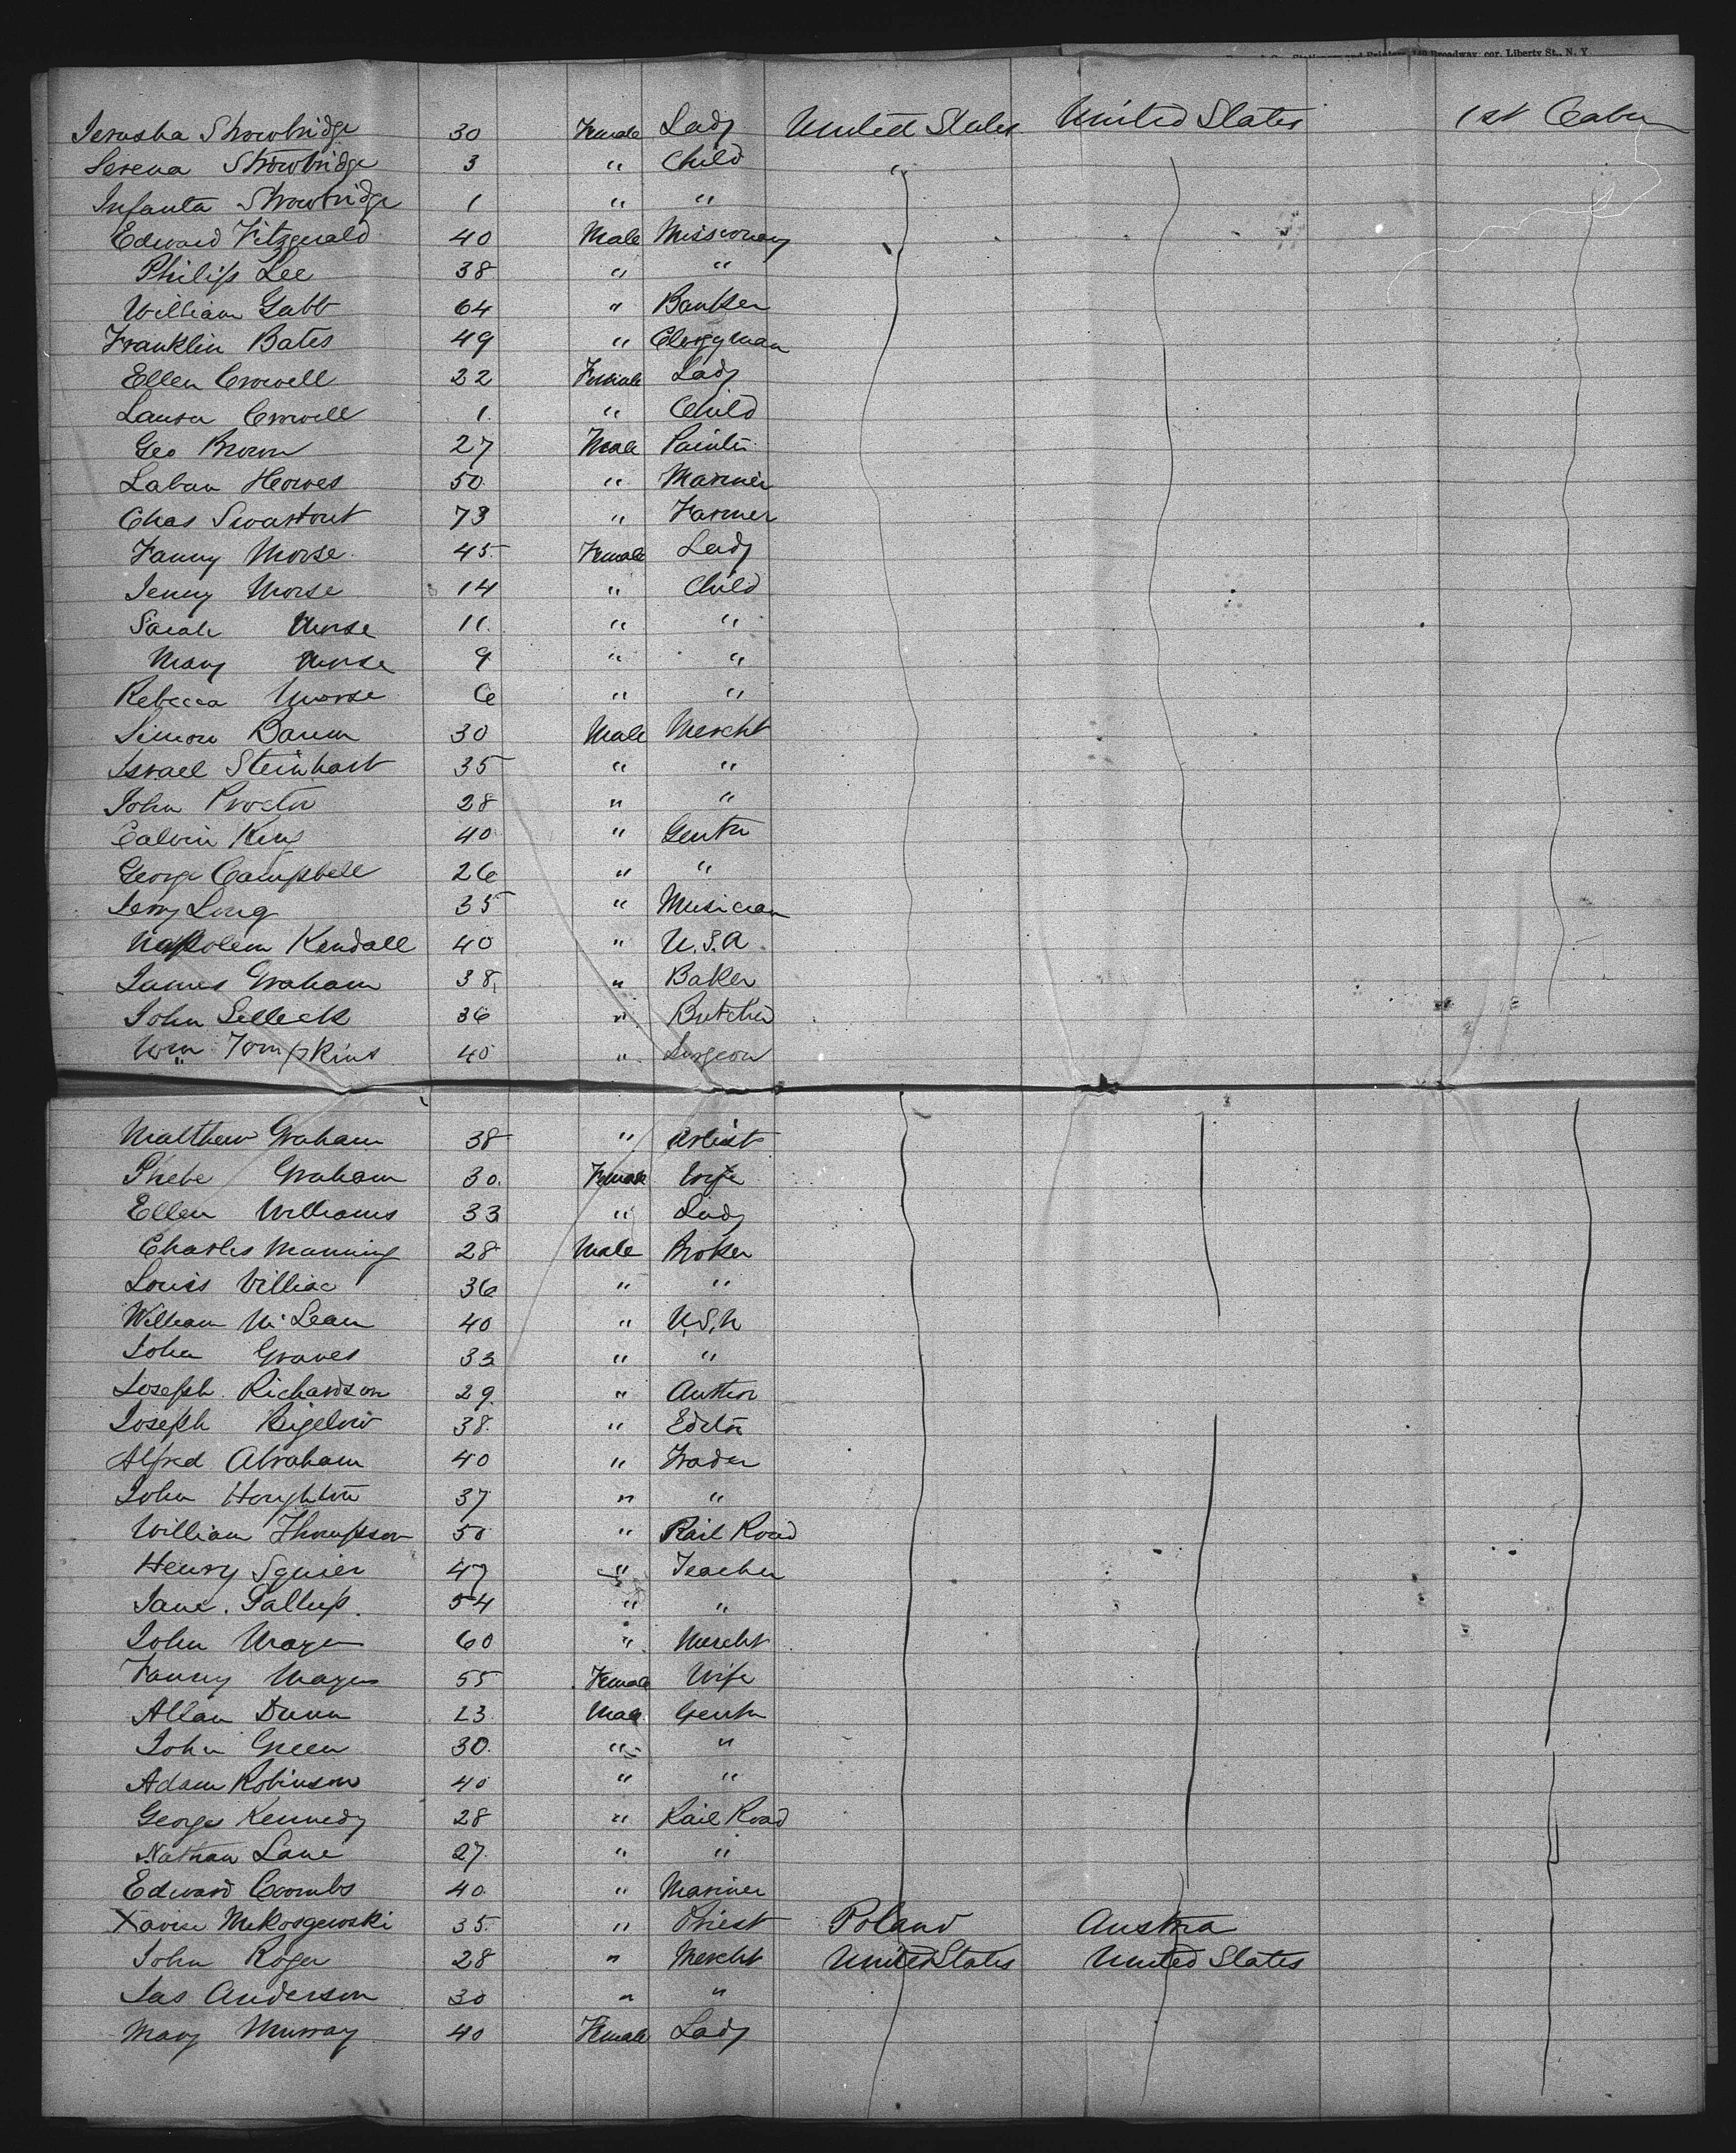 140 Broadway, cor. Liberty St., N. Y.
Jerusha Strowbridge 30 Female Lady United States United States 1st Cabin
Serena Strowbridge 3 " Child "
Infanta Strowbridge 1 " "
Edward Fitzgerald 40 Male Missionary
Philip Lee 38 " "
William Gabb 64 " Banker
Franklin Bates 49 " Clergyman
Ellen Crowell 22 Female Lady
Laura Crowell 1 " Child
Geo Brown 27 Male Painter
Laban Howes 50 " Mariner
Chas Swartout 73 " Farmer
Fanny Morse 45 Female Lady
Jenny Morse 14 " Child
Sarah Morse 11 " "
Mary Morse 9 " "
Rebecca Morse 6 " "
Simon Baum 30 Male Mercht
Israel Steinhart 35 " "
John Procter 28 " "
Calvin King 40 " Gentn
George Campbell 26 " "
Jerry Long 35 " Musician
Napoleon Kendall 40 " U.S.A.
James Graham 38 " Baker
John Selleck 36 " Butcher
Wm Tompkins 40 " Surgeon
Matthew Graham 38 " Artist
Phebe Graham 30 Female Wife
Ellen Williams 33 " Lady
Charles Manning 28 Male Broker
Louis 36 " "
William McLean 40 " U.S.N
John Graves 33 " "
Joseph Richardson 29 " Author
Joseph Bigelow 38 " Editor
Alfred Abraham 40 " Trader
John Houghton 37 " "
William Thompson 50 " Rail Road
Henry Squier 47 " Teacher
Jane. Gallup. 54 " "
John 60 " Mercht
Fanny 55 Female Wife
Allan Dunn 23 Male Gentn
John Green 30 " "
Adam Robinson 40 " "
George Kennedy 28 " Rail Road
Nathan Lane 27 " "
Edward Coombs 40 " Mariner
35 " Priest Poland Austria
John Roger 28 " Mercht United States United States
Jas Anderson 30 " "
Mary Murray 40 Female Lady